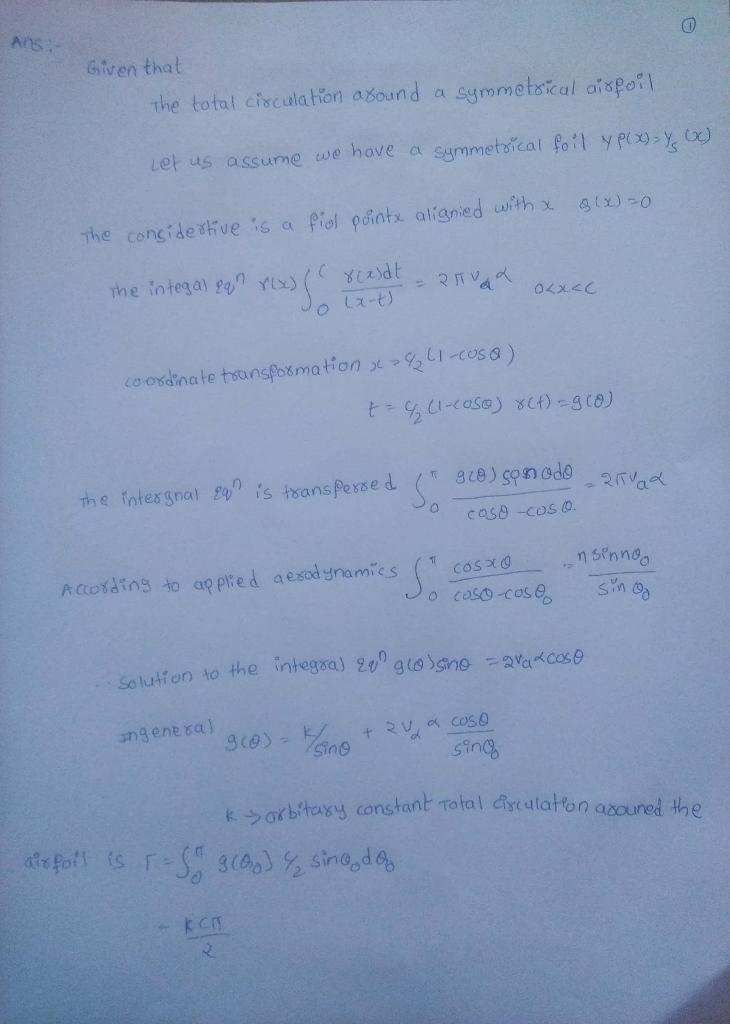 ①
Ans:-
Given that
The total circulation around a symmetrical airfoil
Let us assume we have a symmetrical foil y p(x)=y_s (x)
The considertive is a fiol pointx alignied with x g(x)=0
The integal eqⁿ r(x) ∫₀^c γ(x)dt / (x-t) = 2πV_α α 0<x<c
co-ordinate transformation x = c/2 (1-cosθ)
t = c/2 (1-cosθ) γ(t) = g(θ)
The intersgnal eqⁿ is transferred ∫₀^π g(θ) sinθdθ / cosθ-cosθ. = 2πV_α α
According to applied aerodynamics ∫₀^π cosxθ / cosθ-cosθ₀ = π sinnθ₀ / sinθ₀
Solution to the integral eqⁿ g(θ)sinθ = 2V_α α cosθ
ingeneral g(θ) = K/sinθ + 2V_α α cosθ / sinθ₀
K → orbitary constant Total circulation arouned the
airfoil is Γ = ∫₀^π g(θ₀) c/2 sinθ₀dθ₀
- KCπ / 2